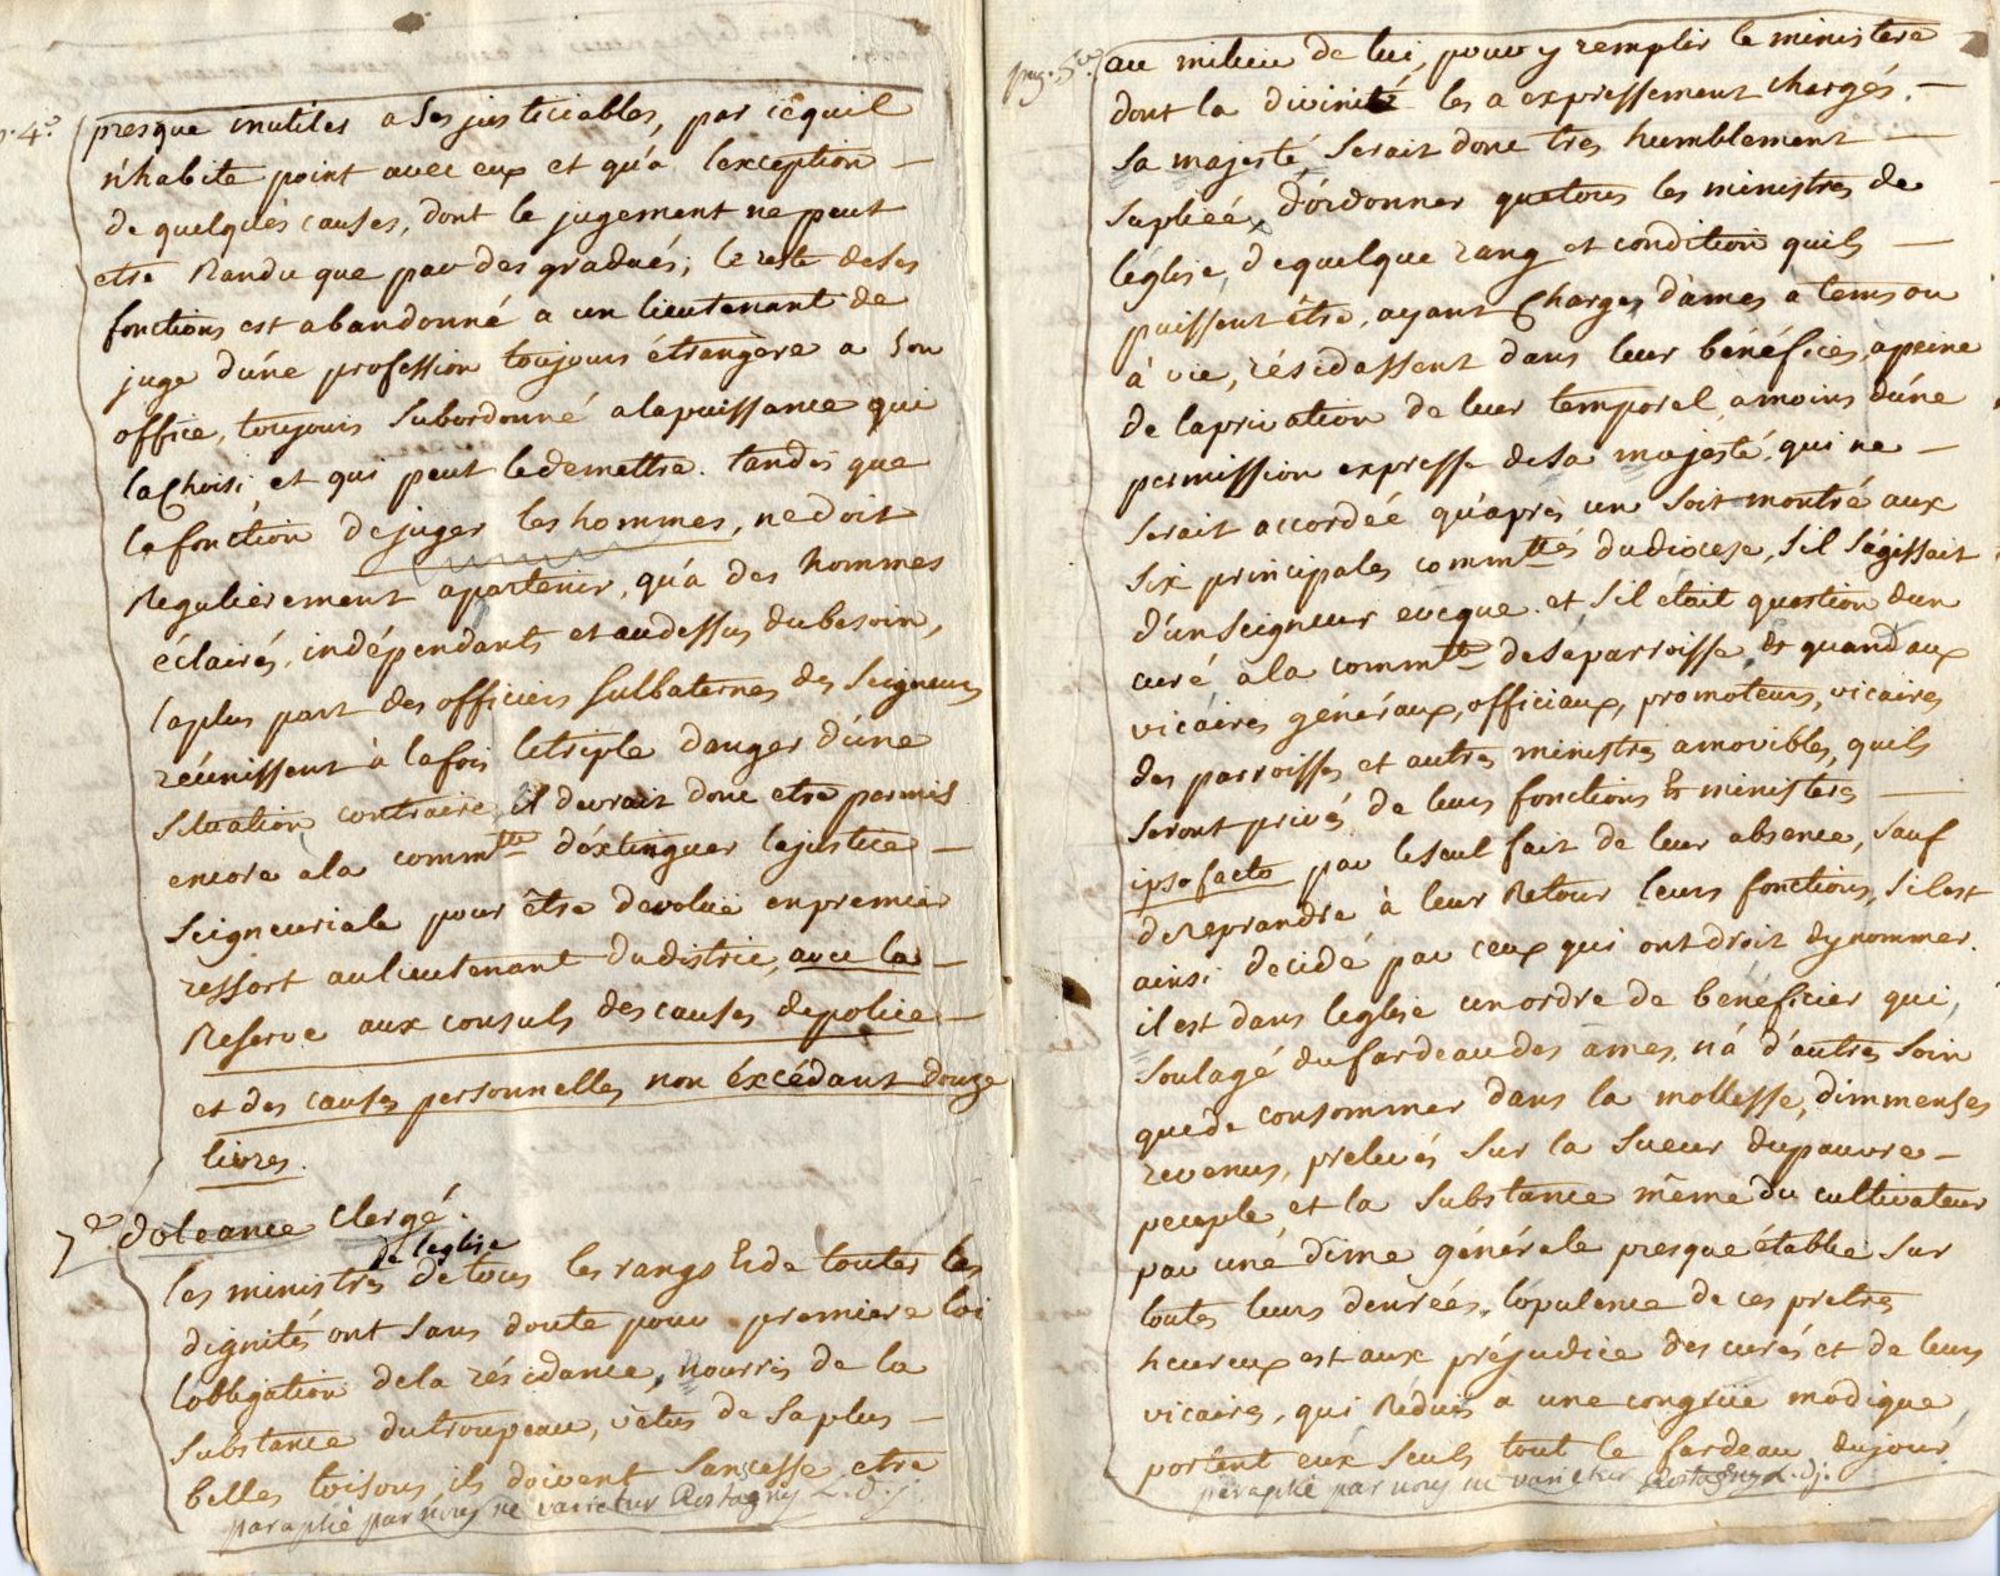 p. 4e.
presque inutiles a ses justiciables, par cequil
n'habite point avec eux et qu'a lexception —
de quelques causes, dont le jugement ne peut
etre Randu que par des gradués; le reste deses
fonctions est abandonné a un lieutenant de
juge d'une profession toujours étrangere a son
office, toujours subordonné alapuissance qui
la Choisi, et qui peut ledemettre. tandis que
la fonction dejuger les hommes, nedoit
Regulierement apartenir, qu'a des hommes
éclairés, indépendants et audessus dubesoin,
laplus part des officiers sulbaternes des seigneurs
réunissent à lafois letriple danger d'une
situation contraire, il devrait donc etre permis
encore ala commtté d'éxtinguer lajustice —
seigneuriale pour être devolue enpremier
ressort aulieutenant dudistric, avec la —
Reserve aux consuls des causes depolice —
et des causes personnelles non éxcédant douze
livres.
7e doleance Clergé.
de leglise
les ministres detous les rangs Et de toutes les
dignités ont sans doute pour premiere loi
lobligation dela résidance, nourris de la
substance dutroupeau, vétus de saplus —
belles toisons, ils doivent sanscesse etre
paraphé par nous ne varietur Rostagny L. d. j.
pag. 5e.
au milieu de lui, pour y remplir le ministere
dont la divinité les a expressement chargés. —
sa majesté serait donc tres humblement —
supliéé, d'ordonner quetous les ministres de
léglise, dequelque rang et condition quils —
puissent être, ayant Charges d'ames a tems ou
à vie, résidassent dans leur bénéfices, apeine
de laprivation de leur temporel, amoins d'une
permission expresse desa majesté, qui ne —
serait accordéé qu'après un soit montré aux
six principales commttés dudiocese, sil s'agissait
d'un seigneur eveque. et sil était question dun
curé, ala commtté desaparroisse, Et quand aux
vicaires généraux, officiaux, promoteurs, vicaires
des parroisses et autres ministres amovibles, quils
seront privés de leurs fonctions Et ministeres —
ipso facto par leseul fait de leur absence, sauf
dereprandre à leur Retour leurs fonctions, silest
ainsi decidé par ceux qui ont droit dynommer.
il est dans leglise unordre de bénéficier qui,
soulagé dufardeau des âmes, n'a d'autres soin
quede consommer dans la mollesse, dimmenses
revenus, prelevés sur la sueur dupauvre —
peuple, et la substance même du cultivateur
par une dîme générale presque établie sur
toutes leurs denréés. lopulence de ces pretres
heureux est aux préjudice des curés et de leurs
vicaires, qui Réduis a une congrüe modique,
portent eux seuls tout le fardeau dujour.
paraphé par nous ne varietur Rostagny L. dj.